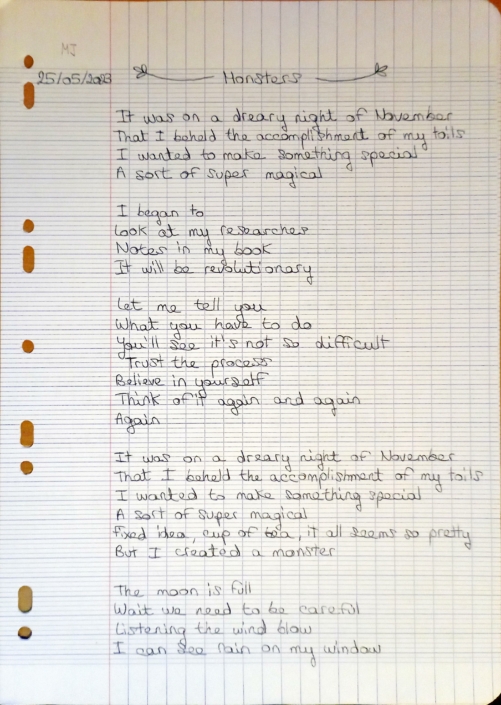 MJ
25/05/2023
Monsters
It was on a dreary night of November
That I beheld the accomplishment of my toils
I wanted to make something special
A sort of super magical
I began to
Look at my researches
Notes in my book
It will be revolutionary
Let me tell you
What you have to do
You'll see it's not so difficult
Trust the process
Believe in yourself
Think of it again and again
Again
It was on a dreary night of November
That I beheld the accomplishment of my toils
I wanted to make something special
A sort of super magical
Fixed idea, cup of tea, it all seems so pretty
But I created a monster
The moon is full
Wait we need to be careful
Listening the wind blow
I can see rain on my window